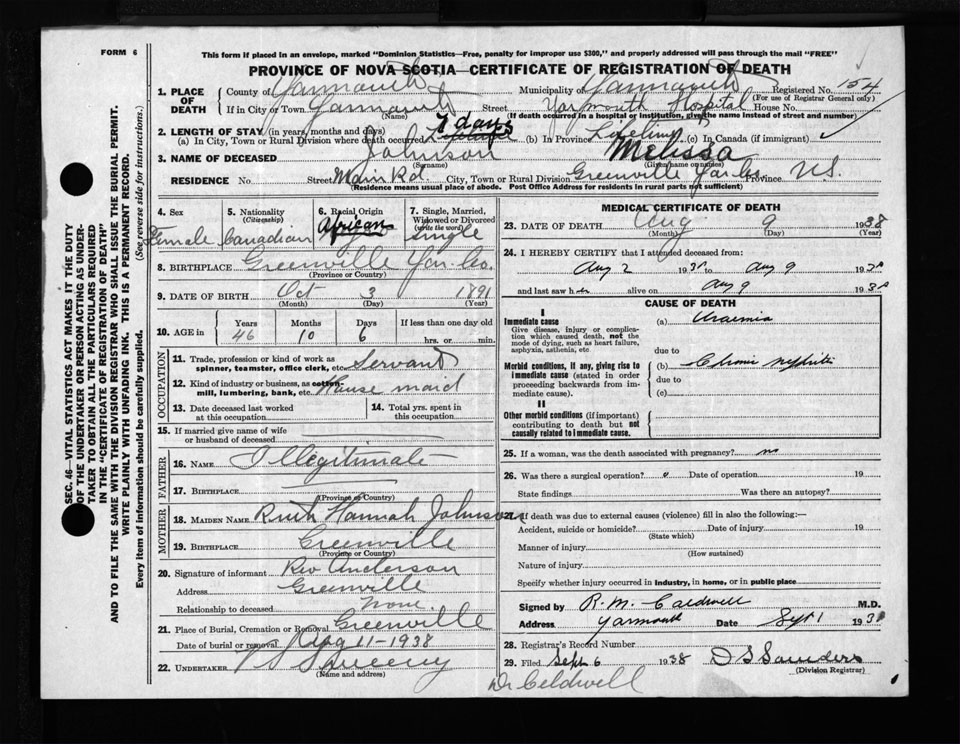 FORM 6
This form if placed in an envelope, marked "Dominion Statistics—Free, penalty for improper use $300," and properly addressed will pass through the mail "FREE"
PROVINCE OF NOVA SCOTIA—CERTIFICATE OF REGISTRATION OF DEATH
1. PLACE OF DEATH County of Yarmouth Municipality of Yarmouth Registered No. 154
(For use of Registrar General only)
If in City or Town Yarmouth Street Yarmouth Hospital House No.
(Name) (If death occurred in a hospital or institution, give the name instead of street and number)
2. LENGTH OF STAY (in years, months and days)
(a) In City, Town or Rural Division where death occurred 7 days (b) In Province Lifetime (c) In Canada (if immigrant)
3. NAME OF DECEASED Johnson Melissa
(Surname) (Given name or names)
RESIDENCE No. Street Main Rd. City, Town or Rural Division Greenville Yar Co. Province N.S.
(Residence means usual place of abode. Post Office Address for residents in rural parts not sufficient)
4. Sex Female
5. Nationality (Citizenship) Canadian
6. Racial Origin African
7. Single, Married, Widowed or Divorced (write the word) Single
8. BIRTHPLACE Greenville Yar. Co.
(Province or Country)
9. DATE OF BIRTH Oct 3 1891
(Month) (Day) (Year)
10. AGE in Years 46 Months 10 Days 6 If less than one day old hrs. or min.
OCCUPATION
11. Trade, profession or kind of work as spinner, teamster, office clerk, etc. Servant
12. Kind of industry or business, as cotton-mill, lumbering, bank, etc. House maid
13. Date deceased last worked at this occupation
14. Total yrs. spent in this occupation
15. If married give name of wife or husband of deceased
FATHER
16. NAME Illegitimate
17. BIRTHPLACE
(Province or Country)
MOTHER
18. MAIDEN NAME Ruth Hannah Johnson
19. BIRTHPLACE Greenville
(Province or Country)
20. Signature of informant Rev Anderson
Address Greenville
Relationship to deceased None.
21. Place of Burial, Cremation or Removal Greenville
Date of burial or removal Aug 11-1938
22. UNDERTAKER Sweeny
(Name and address)
MEDICAL CERTIFICATE OF DEATH
23. DATE OF DEATH Aug 9 1938
(Month) (Day) (Year)
24. I HEREBY CERTIFY that I attended deceased from:
Aug 2 1938 to Aug 9 1938
and last saw her alive on Aug 9 1938
CAUSE OF DEATH
I
Immediate cause
Give disease, injury or complication which caused death, not the mode of dying, such as heart failure, asphyxia, asthenia, etc
(a) Uraemia
due to
Morbid conditions, if any, giving rise to immediate cause (stated in order proceeding backwards from immediate cause).
(b) Chronic nephritis
due to
(c)
II
Other morbid conditions (if important) contributing to death but not causally related to immediate cause.
25. If a woman, was the death associated with pregnancy? no
26. Was there a surgical operation? Date of operation 19
State findings Was there an autopsy?
27. If death was due to external causes (violence) fill in also the following:—
Accident, suicide or homicide? Date of injury 19
(State which)
Manner of injury
(How sustained)
Nature of injury
Specify whether injury occurred in industry, in home, or in public place
Signed by R. M. Caldwell M.D.
Address Yarmouth Date Sept 1 1938
28. Registrar's Record Number
29. Filed Sept 6 1938 D S Saunders
(Division Registrar)
Dr Celdwell
SEC. 46—VITAL STATISTICS ACT MAKES IT THE DUTY
OF THE UNDERTAKER OR PERSON ACTING AS UNDERTAKER TO OBTAIN ALL THE PARTICULARS REQUIRED
IN THE "CERTIFICATE OF REGISTRATION OF DEATH" AND TO FILE THE SAME WITH THE DIVISION REGISTRAR WHO SHALL ISSUE THE BURIAL PERMIT.
WRITE PLAINLY WITH UNFADING INK. THIS IS A PERMANENT RECORD.
Every item of information should be carefully supplied. (See reverse side for instructions.)